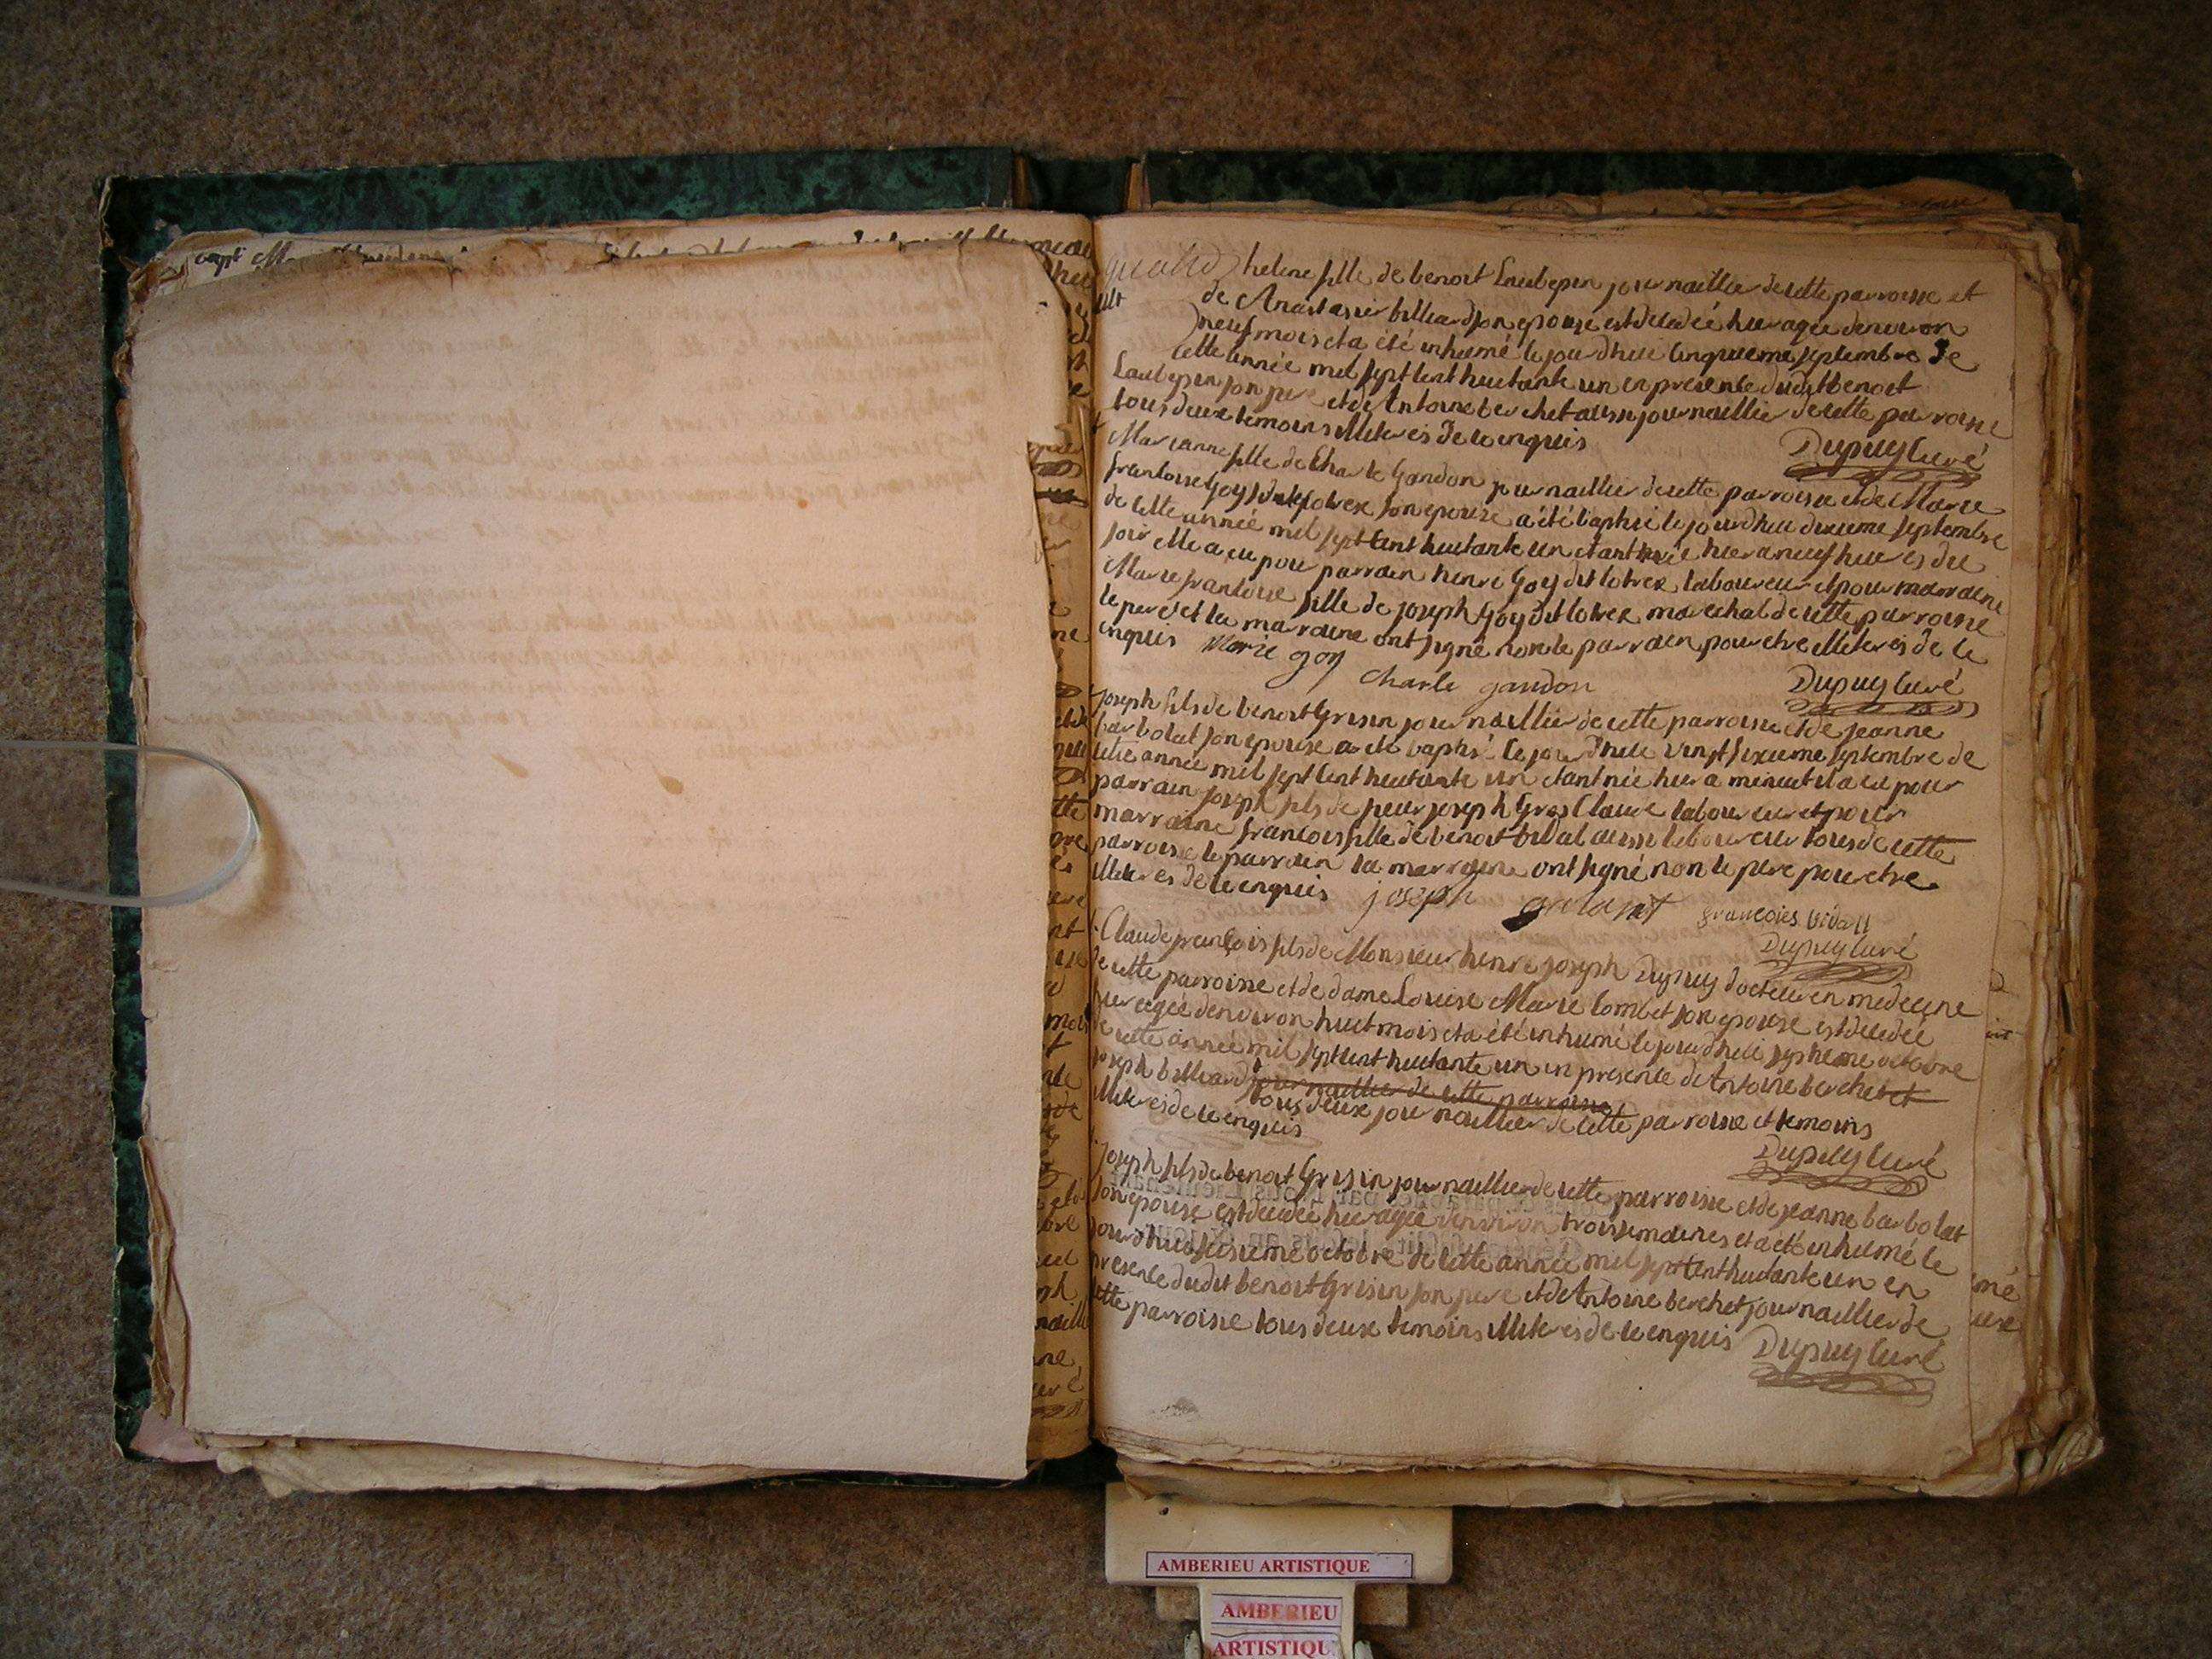 helene fille de benoit Laubepin journaillier de cette parroisse et
de Anastasie billiard son epouse est decedeé hier agée denviron
neuf mois et a été inhumé le jourdhui cinquieme septembre de
cette année mil sept cent huitante un en presence dudit benoit
Laubepin son pere et de Antoine berchet aussi journaillier de cette parroisse
tous deux temoins illiteres de ce enquis
Dupuy Curé
Marianne fille de Charle Gandon journaillier de cette parroisse et de Marie
francoise Goy son epouse a été baptisé le jourdhui dixieme septembre
de cette année mil sept cent huitante un etant neé hier a neuf heures du
soir elle a eu pour parrain henri Goy dit laboureur et pour marraine
Marie francoise fille de joseph Goy dit marechal de cette parroisse
le pere et la marraine ont signé non le parrain pour etre illiteres de ce
enquis Marie goy
charle gandon
Dupuy Curé
joseph fils de benoit Grisin journaillier de cette parroisse et de jeanne
barbolat son epouse a eté baptisé le jourdhui vingt sixieme septembre de
cette année mil sept cent huitante un etant née hier a minuit il a eu pour
parrain joseph fils de feu joseph Gros Claude laboureur et pour
marraine francois fille de benoit bidal aussi laboureur tous de cette
parroisse le parrain la marraine ont signé non le pere pour etre
illiteres de ce enquis joseph
francoies bidall
Dupuy Curé
Claude francois fils de Monsieur henri joseph Dupuy docteur en medecine
de cette parroisse et de dame Louise Marie Combet son epouse est decedée
hier agée denviron huit mois et a été inhumé le jourdhui septieme octobre
de cette année mil sept cent huitante un en presence de Antoine berchet et
joseph billiard journaillier de cette parroisse
tous deux journaillier de cette parroisse et temoins
illiteres de ce enquis
Dupuy Curé
joseph fils de benoit Grisin journaillier de cette parroisse et de jeanne barbolat
son epouse est decedée hier agée denviron trois semaines et a eté inhumé le
jourdhui seisieme octobre de cette année mil sept cent huitante un en
presence dudit benoit Grisin son pere et de Antoine berchet journaillier de
cette parroisse tous deux temoins illiteres de ce enquis
Dupuy Curé
AMBERIEU ARTISTIQUE
AMBERIEU
ARTISTIQU